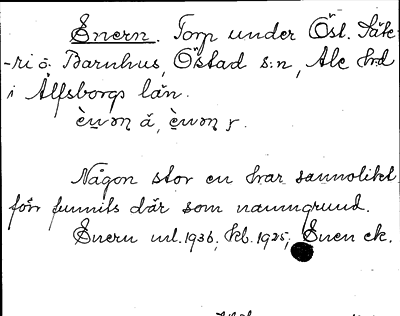 Enern. Torp under Öst. Säte-
-ri o. Barnhus, Östad s:n, Ale hrd
i Älfsborgs län.
Någon stor en har sannolikt
förr funnits där som namngrund.
Enern ml. 1936, kb. 1925, Enen ek.